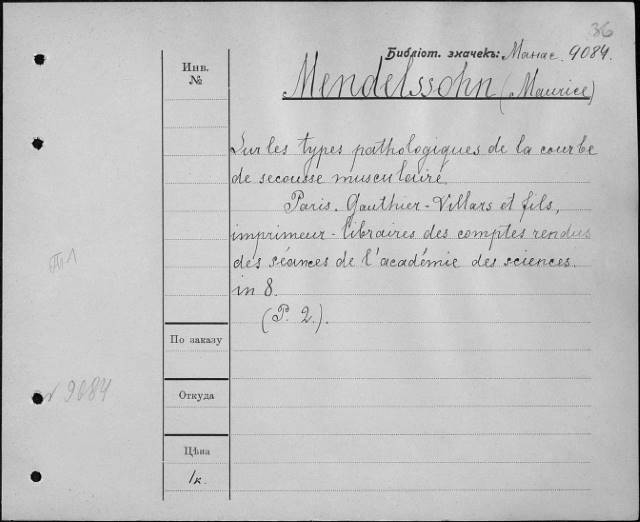 36
Библіот. значекъ: Манас. 9084.
Инв.
№
Mendelssohn (Maurice)
Sur les types pathologiques de la courbe
de secousse musculaire.
Paris. Gauthier-Villars et fils,
imprimeur-libraires des comptes rendus
des séances de l'académie des sciences.
in 8.
(P. 2.).
По заказу
№ 9084
Откуда
Цѣна
1к.